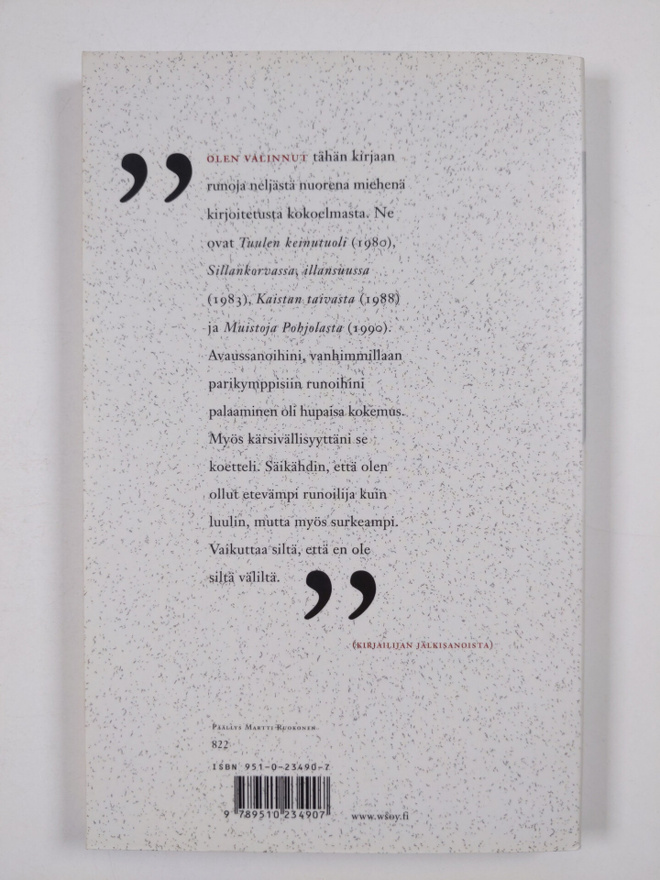 ”
OLEN VALINNUT tähän kirjaan
runoja neljästä nuorena miehenä
kirjoitetusta kokoelmasta. Ne
ovat Tuulen keinutuoli (1980),
Sillankorvassa, illansuussa
(1983), Kaistan taivasta (1988)
ja Muistoja Pohjolasta (1990).
Avaussanoihini, vanhimmillaan
parikymppisiin runoihini
palaaminen oli hupaisa kokemus.
Myös kärsivällisyyttäni se
koetteli. Säikähdin, että olen
ollut etevämpi runoilija kuin
luulin, mutta myös surkeampi.
Vaikuttaa siltä, että en ole
siltä väliltä. ”
(KIRJAILIJAN JÄLKISANOISTA)
PÄÄLLYS MARTTI RUOKONEN
822
ISBN 951-0-23490-7
9 789510 234907
www.wsoy.fi